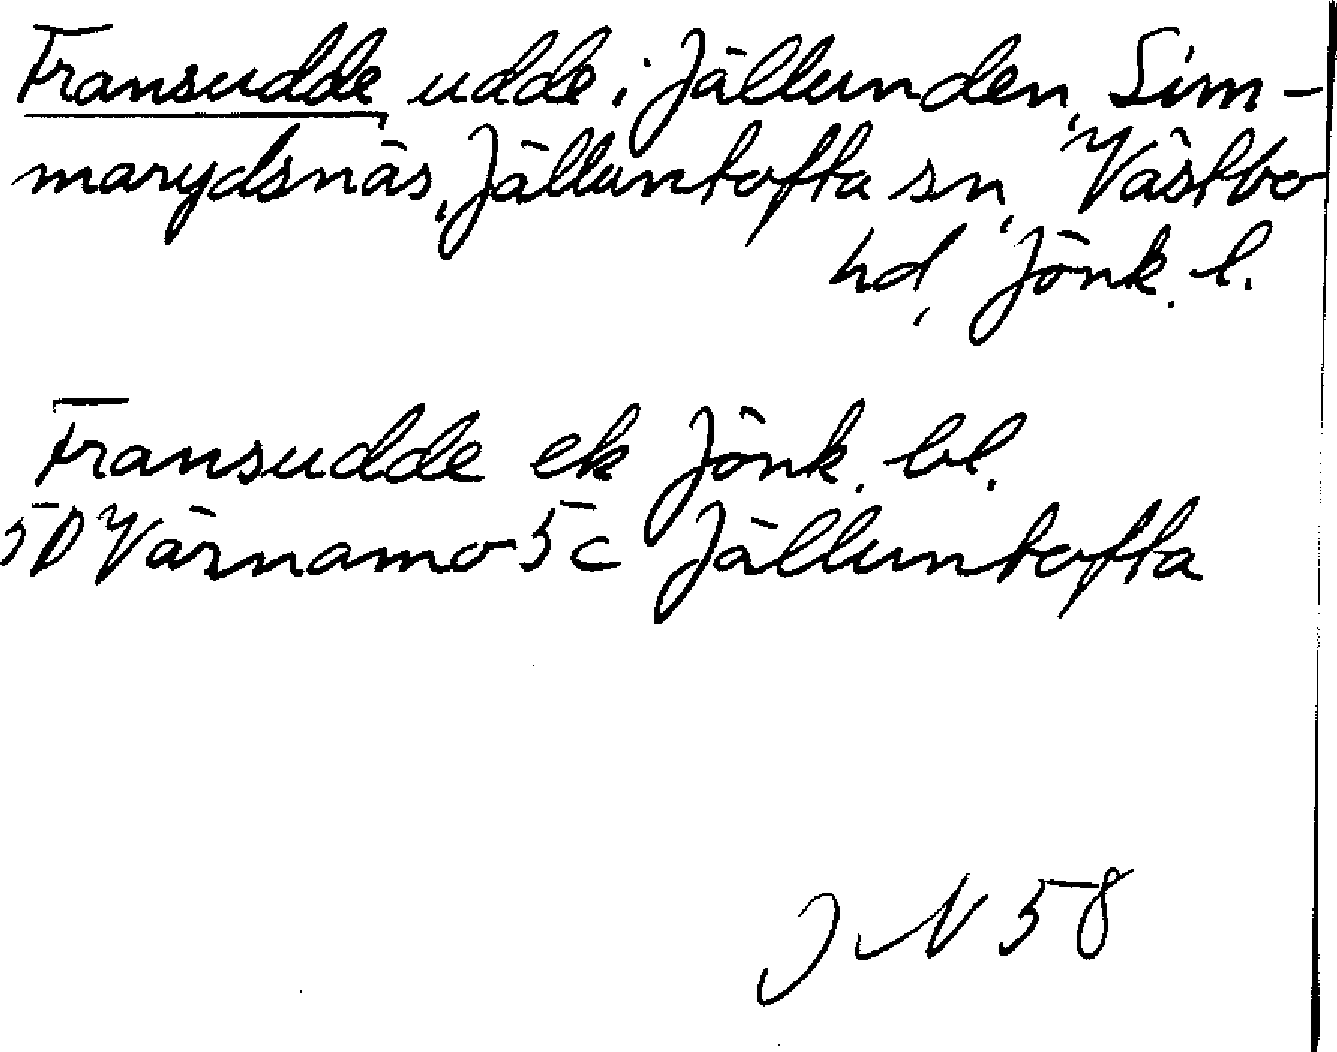 Fransudde, udde i Jällunden, Sim-
marydsnäs, Jälluntofta sn, Västbo
hd, Jönk. l.
Fransudde ek Jönk. bl.
5D Värnamo 5c Jälluntofta
JN 58